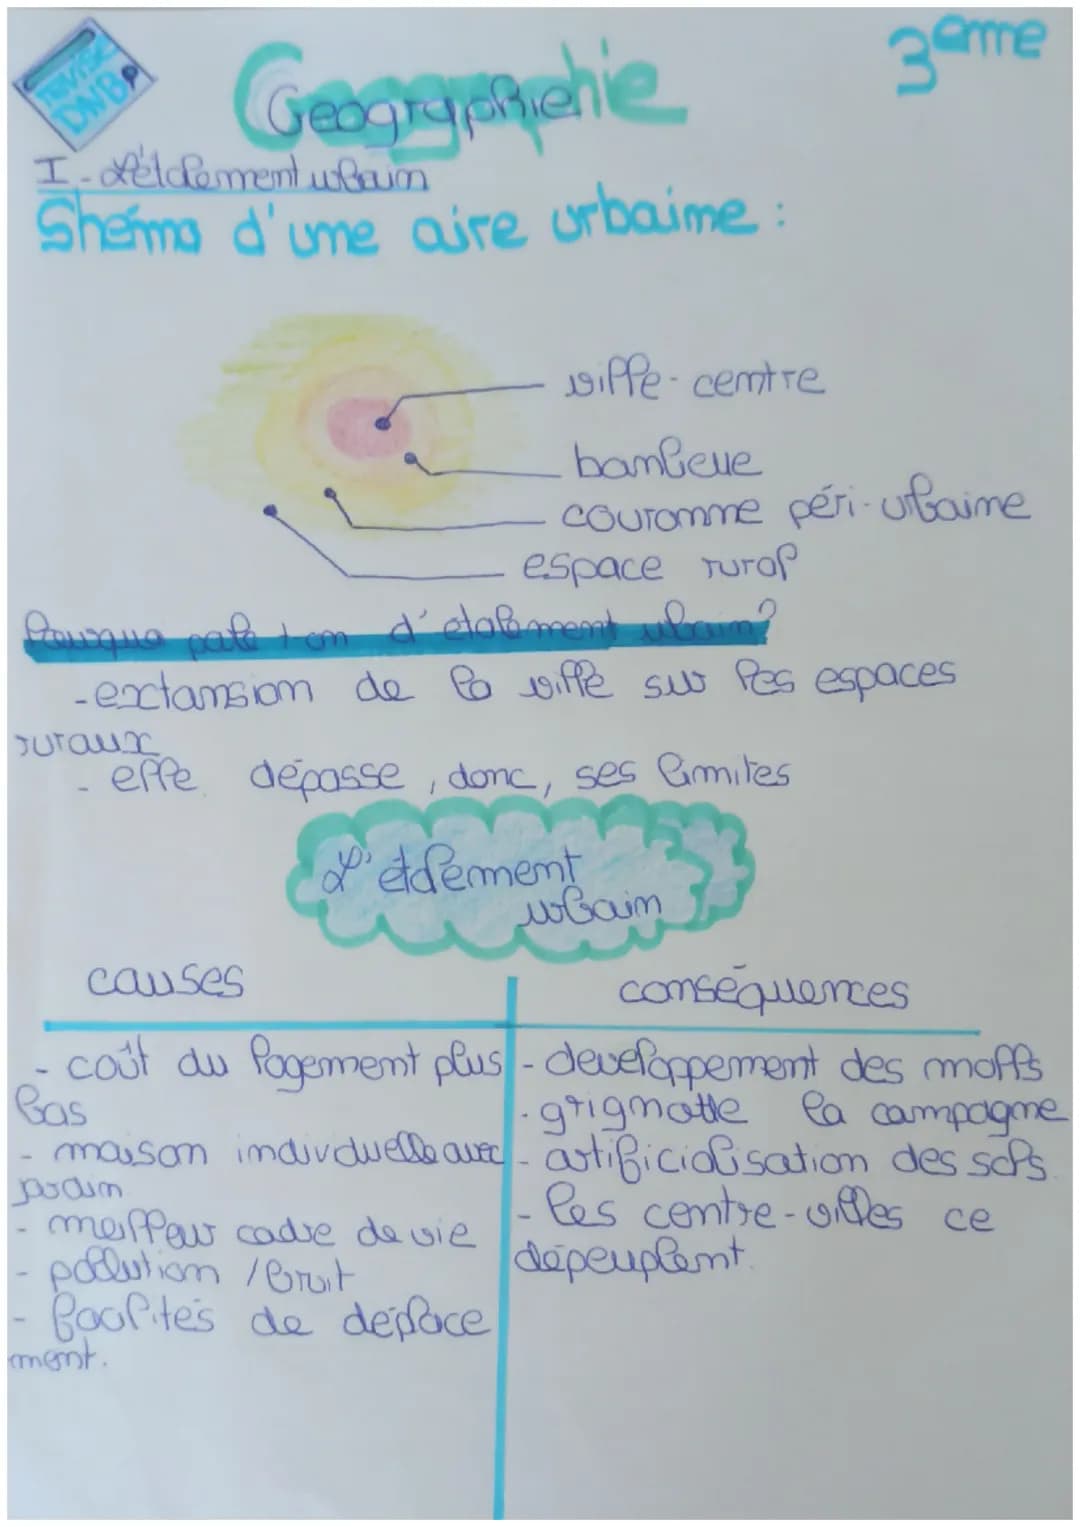 RÉVISE
DNB
Geographie
3eme
I - L'étalement urbain
Shéma d'une aire urbaine :
ville-centre
banlieue
couronne péri-urbaine
espace rural
Pourquo parle ton d'étalement urbain?
-extansion de la ville sur les espaces
ruraux
- elle dépasse, donc, ses limites
L'étalement
urbain
causes
conséquences
- coût du logement plus
bas
- maison indivduelle avec
jardin
- meilleur cadre de vie
- pollution / bruit
- facilités de déplace
ment.
- developpement des malls
- grignotte la campagne
- artificialisation des sols
- les centre-villes ce
dépeuplent.